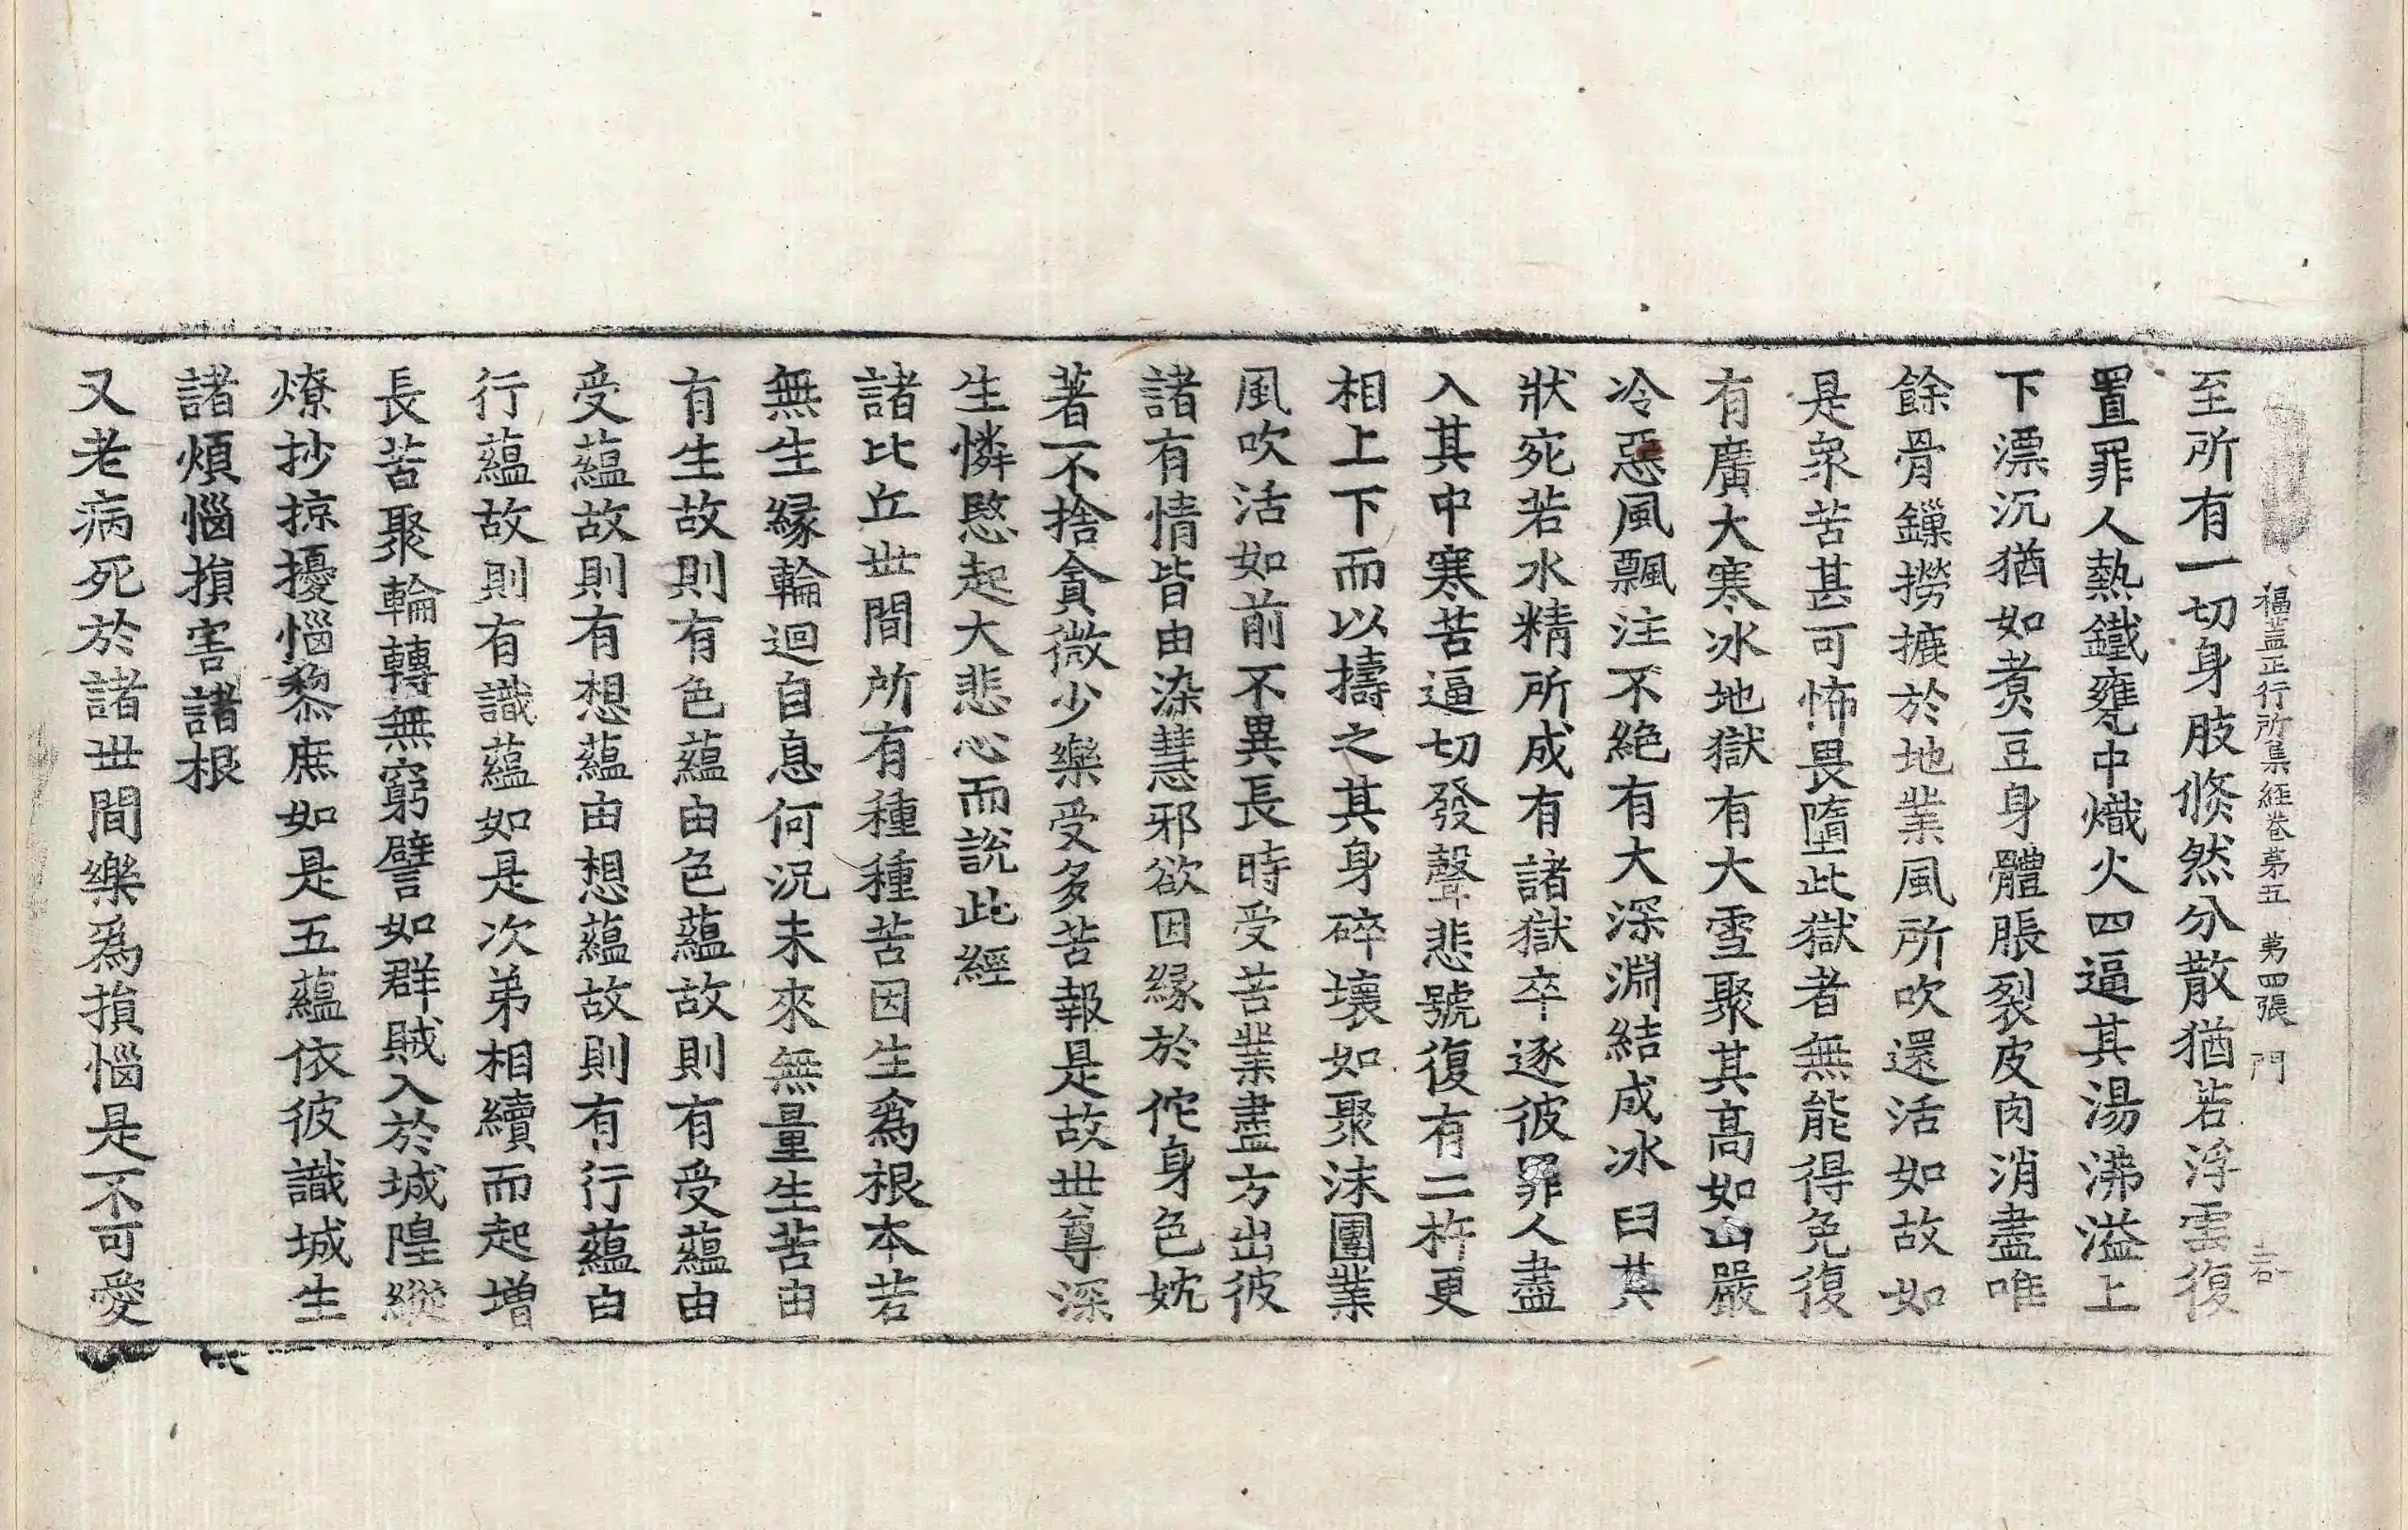 福蓋正行所集經卷第五　第四張　門
至所有一切身肢倏然分散猶若浮雲復
置罪人熱鐵甕中熾火四逼其湯沸溢上
下漂沉猶如煑豆身體脹裂皮肉消盡唯
餘骨鏁撈摝於地業風所吹還活如故如
是衆苦甚可怖畏墮此獄者無能得免復
有廣大寒冰地獄有大雪聚其高如山嚴
冷惡風飄注不絶有大深淵結成冰臼其
狀宛若水精所成有諸獄卒逐彼罪人盡
入其中寒苦逼切發聲悲號復有二杵更
相上下而以擣之其身碎壞如聚沫團業
風吹活如前不異長時受苦業盡方出彼
諸有情皆由染慧邪欲因緣於佗身色妉
著不捨貪微少樂受多苦報是故世尊深
生憐愍起大悲心而説此經
諸比丘世間所有種種苦因生爲根本若
無生緣輪迴自息何況未來無量生苦由
有生故則有色蘊由色蘊故則有受蘊由
受蘊故則有想蘊由想蘊故則有行蘊由
行蘊故則有識蘊如是次弟相續而起增
長苦聚輪轉無窮譬如群賊入於城隍縱
燎抄掠擾惱黎庶如是五蘊依彼識城生
諸煩惱損害諸根
又老病死於諸世間樂爲損惱是不可愛